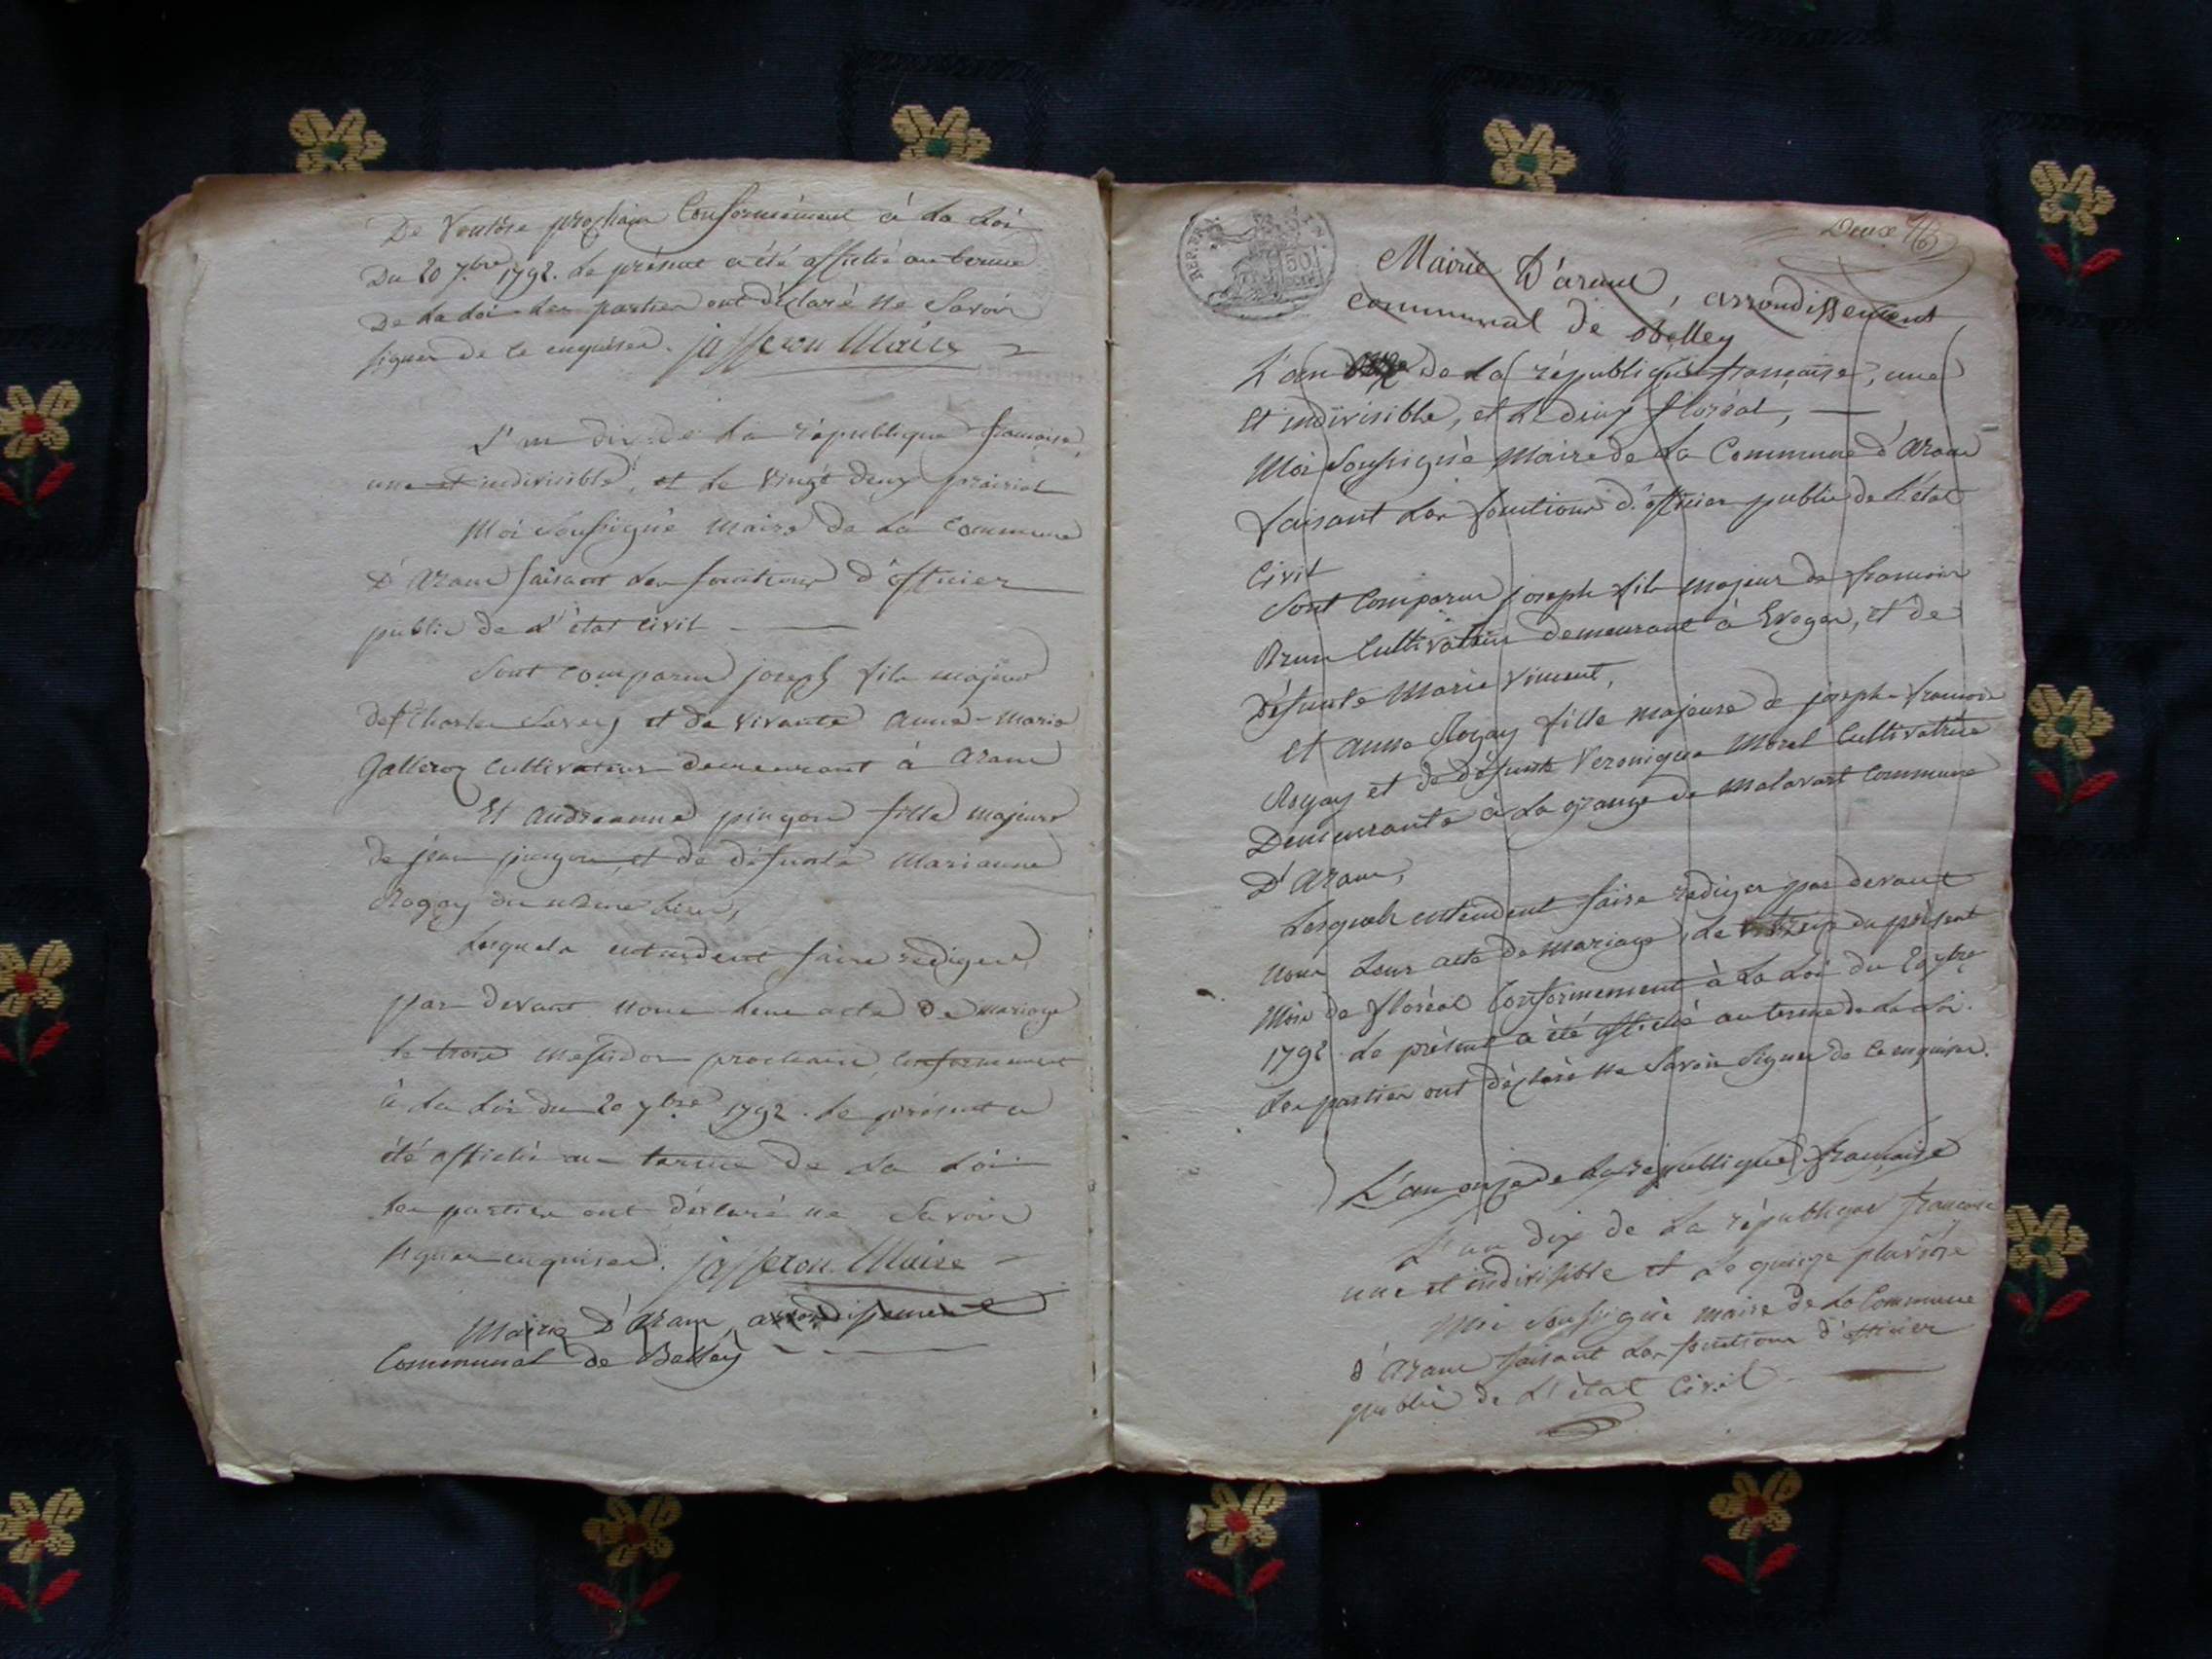 De Ventôse prochain Conformément à La Loi
Du 20 7.bre 1792. Le présent a été affiché au terme
De La Loi Les parties ont déclaré ne Savoir
signer de ce enquises. jasseron Maire
L'an dix de La république francaise,
une et indivisible, et Le vingt deux prairial
Moi Soussigné Maire de La Commune
D'Aranc faisant Les fonctions d'officier
public de L'état Civil
Sont comparus joseph fils majeur
de Charles Savey et de vivante anne-Marie
Galleroz Cultivateurs demeurant à Aranc
Et andreanne pingon fille majeure
de jean pingon, et de défunte Marianne
Rogay du même Lieu,
Lesquels entendent faire rediger
par devant nous leur acte de mariage
le trois messidor prochain, Conformement
à La Loi du 20 7bre 1792. Le présent a
été affiché au terme de La Loi
les parties ont déclaré ne Savoir
signer enquises. jasseron Maire
Mairie D'Aranc, arrondissement
Communal de Belley
Deux
REP. FRA.
50
Mairie D'aranc, arrondissement
communal de Belley
L'an de La république française, une
et indivisible, et Le deux floréal,
Moi Soussigné Maire de La Commune d'Aranc
faisant Les fonctions d'officier public de L'état
Civil
Sont Comparus joseph fils majeur de francois
Brun Cultivateur demeurant à Evoges, et de
Défunte Marie Vincent,
et anne Rogay fille majeure de joseph-francois
Rogay et de défunte Veronique Morel Cultivatrice
Demeurante à La grange de Malavart Commune
D'Aranc,
Lesquels entendent faire rediger par devant
nous Leur acte de Mariage, Le treize du présent
Mois de floréal Conformement à La Loi du 20 7bre
1792. Le présent a été affiché au terme de La Loi.
Les parties ont déclaré ne Savoir Signer de ce enquises.
L'an onze de La république française
L'an dix de La république francaise
une et indivisible et Le quinze pluviôse
Moi Soussigné maire de La Commune
d'Aranc faisant Les fonctions d'officier
public de L'état Civil